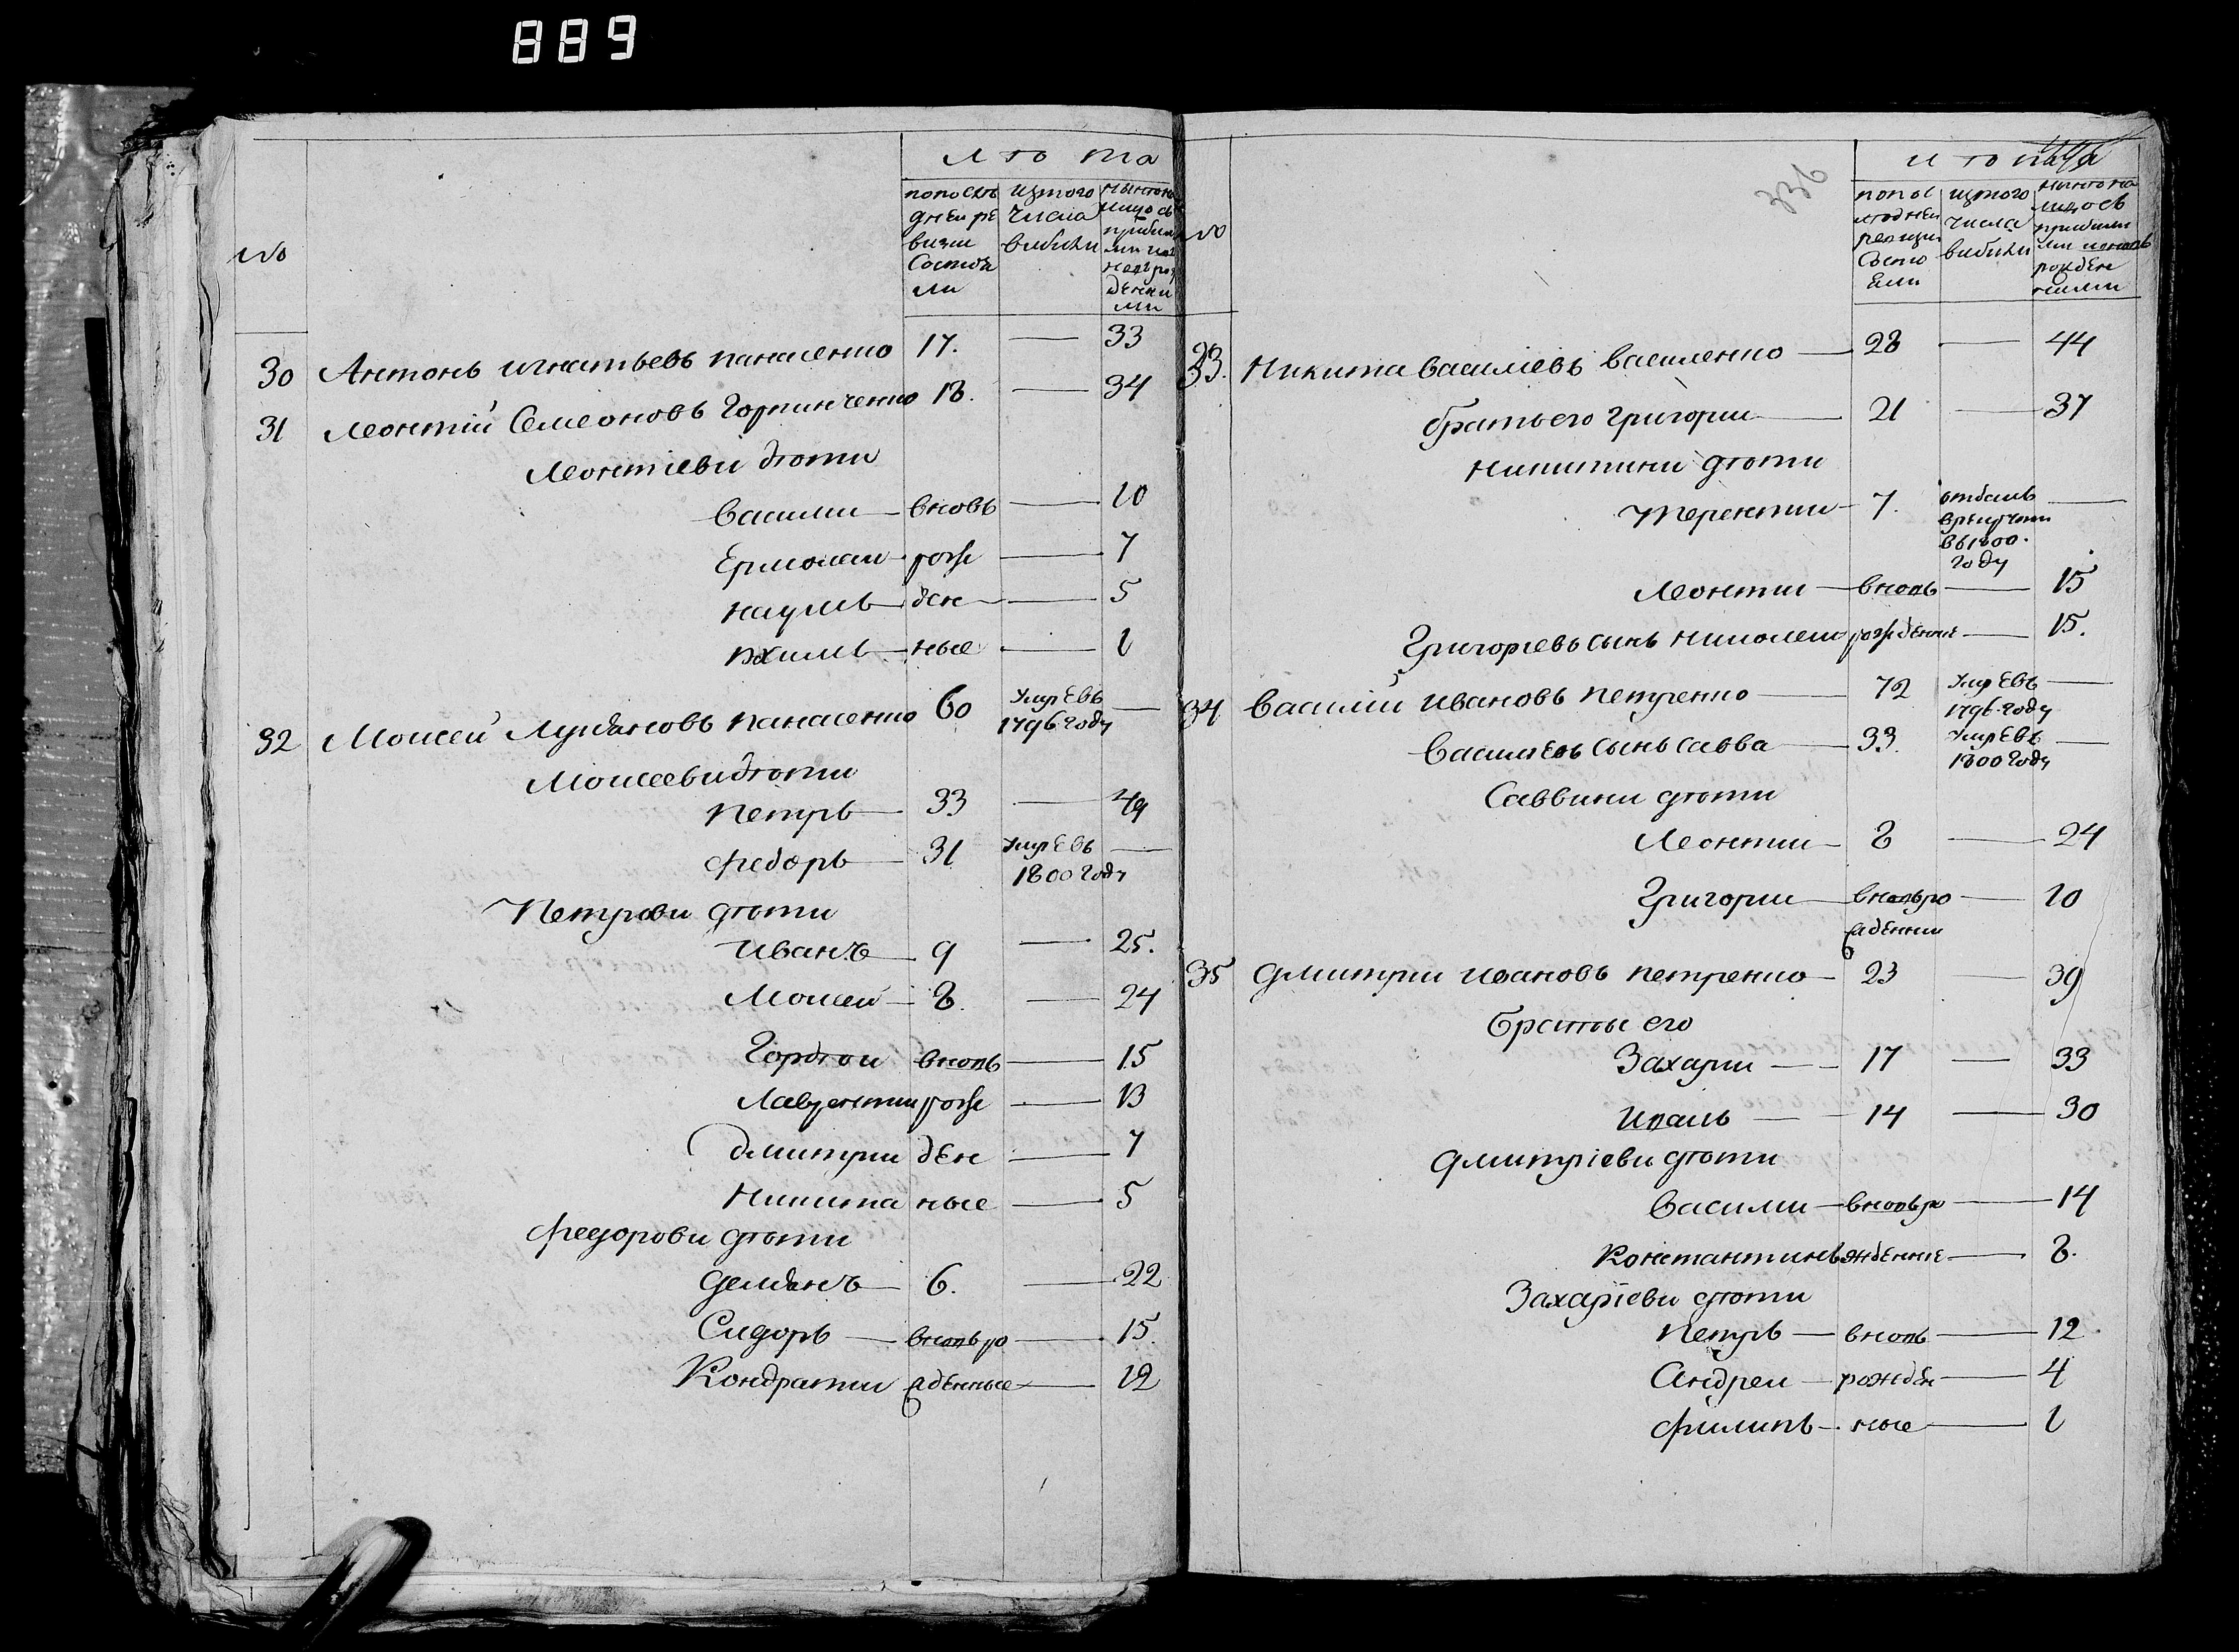 889
№
лѣта
попослѣ
дней ре
визии
Состоя
ли
изтого
числа
выбыли
30 Антонъ игнатьевъ панасенко 17. — 33
31 Леонтiй Семеоновъ Горпинченко 18. — 34
Леонтiеви дѣти
Василии — вновь — 10
Ермолаи — рож — 7
наумъ — ден — 5
якимъ — ные — 1
32 Моисей Лукьяновъ панасенко 60 умре въ —
1796 году
Моисееви дѣти
Петръ — 33 — 49
Федоръ — 31 умре въ —
1800 году
Петрови дѣти
Иванъ — 9 — 25.
Моисеи — 8. — 24
Гордѣи вновь — 15
Лаврентии рож — 13
Дмитрии ден — 7
Никита ные — 5
Федорови дѣти
Демьянъ — 6. — 22
Сидоръ — вновь ро — 15.
Кондратии жденные — 12
336
№
лѣта
попос
лѣдней
ревизии
Состо
яли
изтого
числа
выбыли
33. Никита василiевъ василенко — 28 — 44
братъ его григории — 21 — 37
никитини дѣти
Терентии — 7. отданъ —
в рекруты
въ 1800.
году
Леонтии — вновь — 15
Григорiевъ сынъ николаи рожденние — 15.
34 Василiй ивановъ петренко — 72 умре въ —
1796. году
Василiевъ сынъ савва — 33. умре въ —
1800 году
Саввини дѣти
Леонтии — 8 — 24
Григории — вновь ро — 10
жденнии
35 Дмитрии ивановъ петренко — 23 — 39
братьи его
Захарии — — 17 — 33
Павлъ — — 14 — 30
Дмитрiеви дѣти
Василии — вновь ро — 14
Константинъ жденние — 8.
Захарiеви дѣти
Петръ — вновь — 12
Андреи — рожден — 4
Филипъ — ные — 1